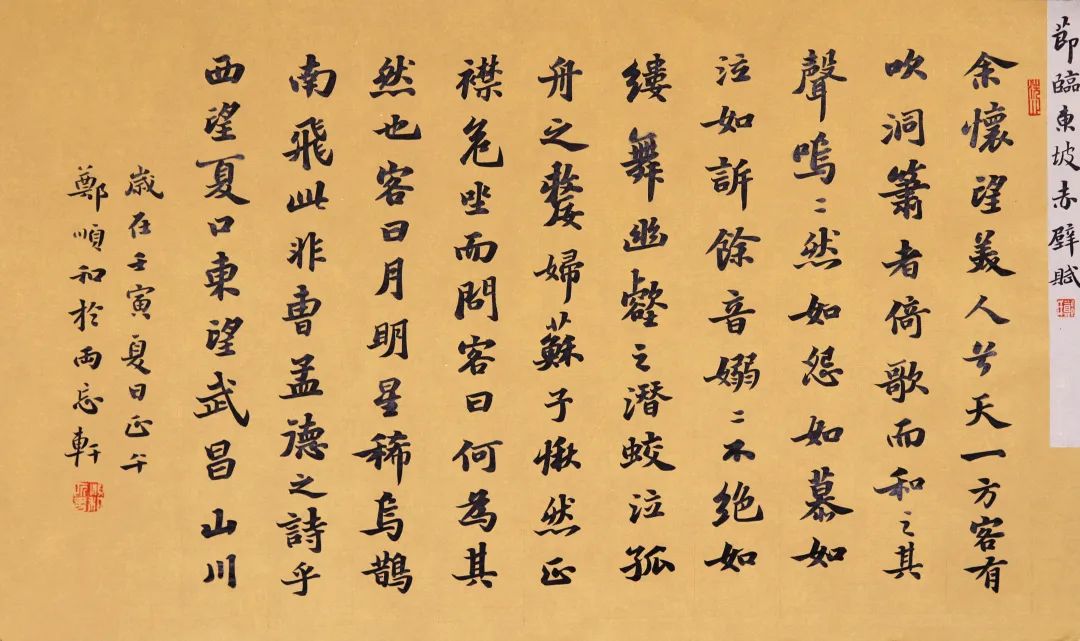 節臨東坡赤壁賦
余懷望羙人兮天一方客有
吹洞簫者倚歌而和之其
聲嗚〻然如怨如慕如
泣如訴餘音嫋〻不絕如
縷舞幽壑之潛蛟泣孤
舟之嫠婦蘇子愀然正
襟危坐而問客曰何為其
然也客曰月明星稀烏鵲
南飛此非曹孟德之詩乎
西望夏口東望武昌山川
歲在壬寅夏日正午
鄭順和於兩忘軒